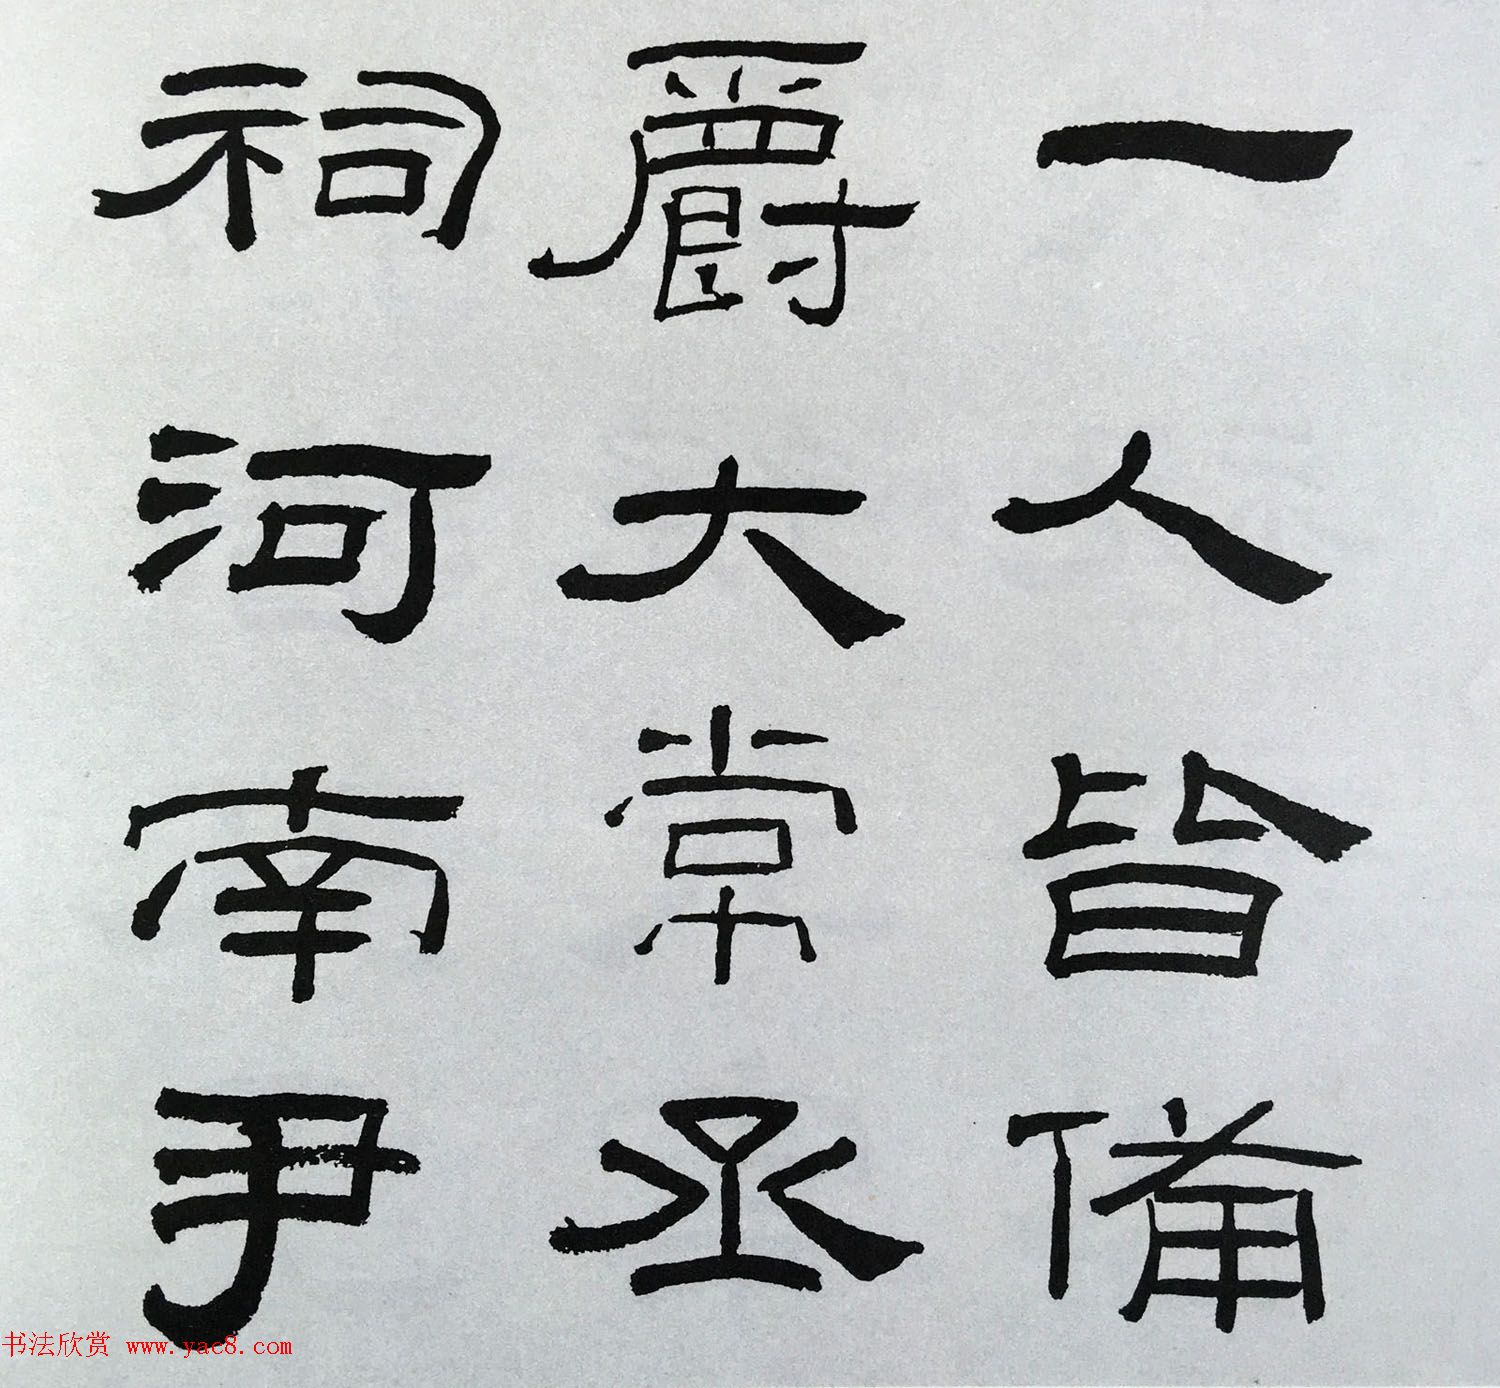 一人皆備
爵大常丞
祠河南尹
书法欣赏 www.yac8.com